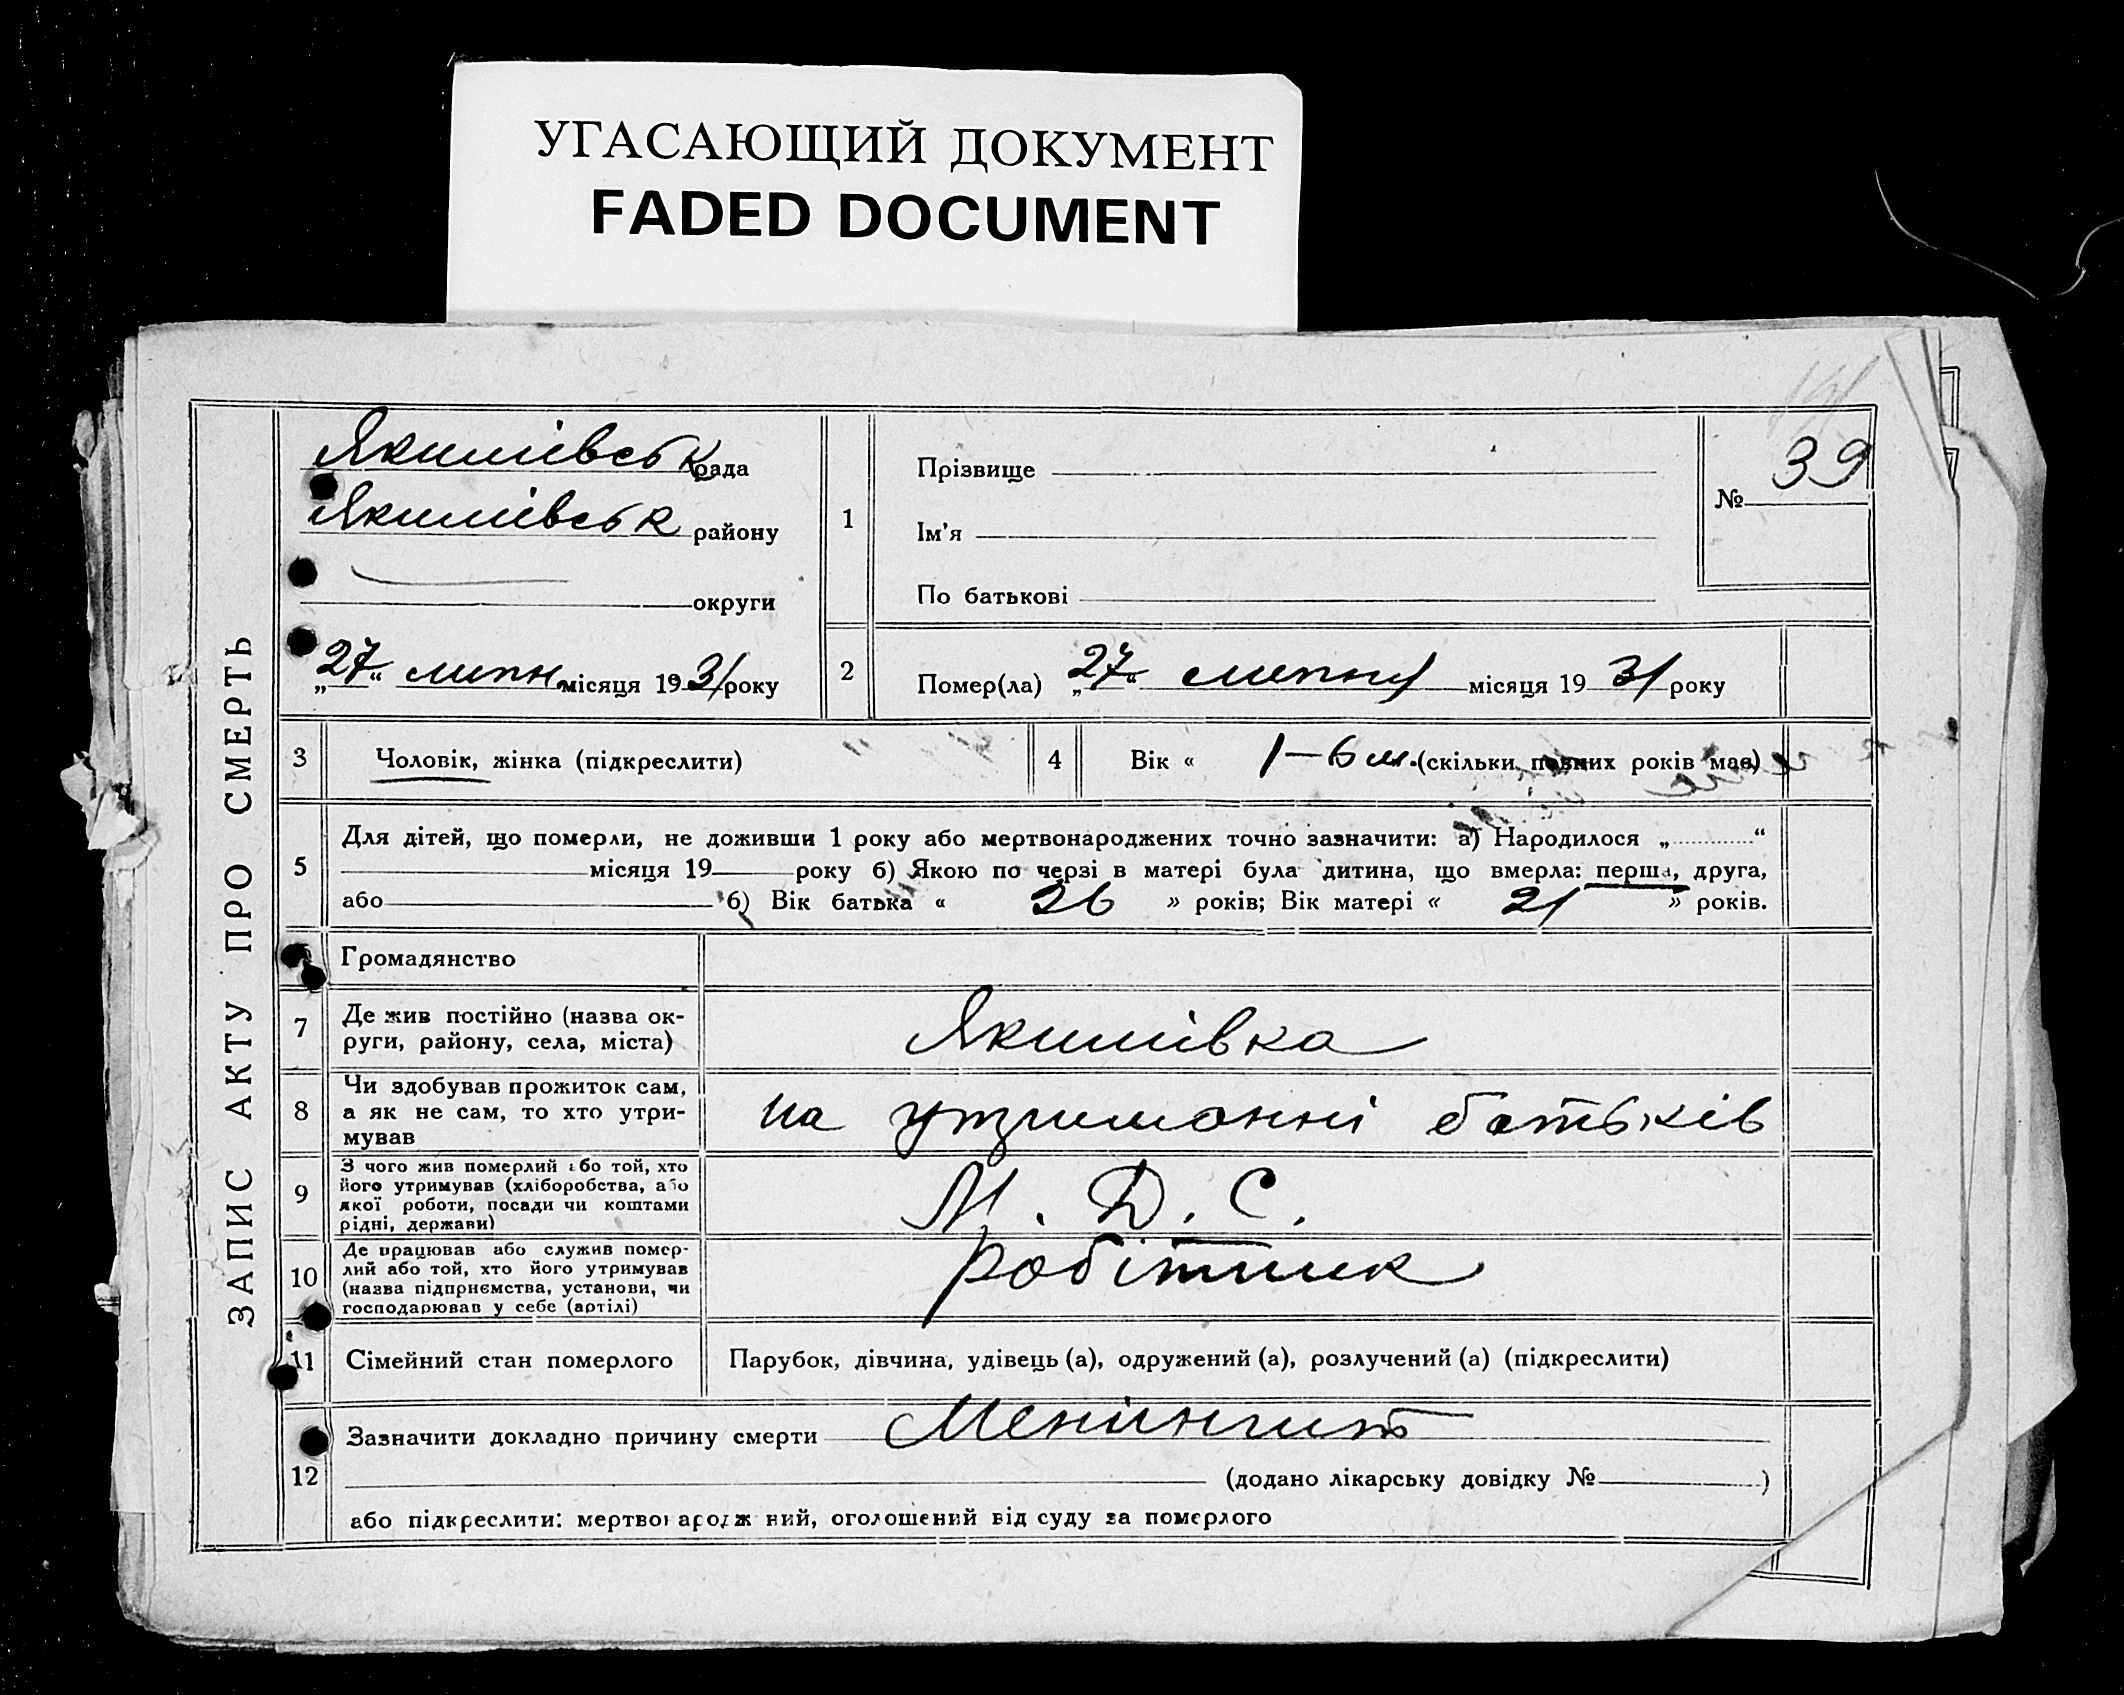 УГАСАЮЩИЙ ДОКУМЕНТ
FADED DOCUMENT
ЗАПИС АКТУ ПРО СМЕРТЬ
Якимівськ рада
Якимівськ району
округи
„27“ липн місяця 1931 року
1
Прізвище
Ім'я
По батькові
№ 39
2
Помер(ла) „27“ липня місяця 1931 року
3
Чоловік, жінка (підкреслити)
4
Вік « 1–6 м. (скільки повних років має)
5
Для дітей, що померли, не доживши 1 року або мертвонароджених точно зазначити: а) Народилося „ “
місяця 19 року б) Якою по черзі в матері була дитина, що вмерла: перша, друга,
або б) Вік батька « 26 » років; Вік матері « 21 » років.
Громадянство
7
Де жив постійно (назва ок-
руги, району, села, міста)
Якимівка
8
Чи здобував прожиток сам,
а як не сам, то хто утри-
мував
на утриманні батьків
9
З чого жив померлий або той, хто
його утримував (хліборобства, або
якої роботи, посади чи коштами
рідні, держави)
М. Д. С.
10
Де працював або служив помер-
лий або той, хто його утримував
(назва підприємства, установи, чи
господарював у себе (артілі)
робітник
11
Сімейний стан померлого
Парубок, дівчина, удівець (а), одружений (а), розлучений (а) (підкреслити)
12
Зазначити докладно причину смерти Менінгит
(додано лікарську довідку № )
або підкреслити: мертвонароджений, оголошений від суду за померлого